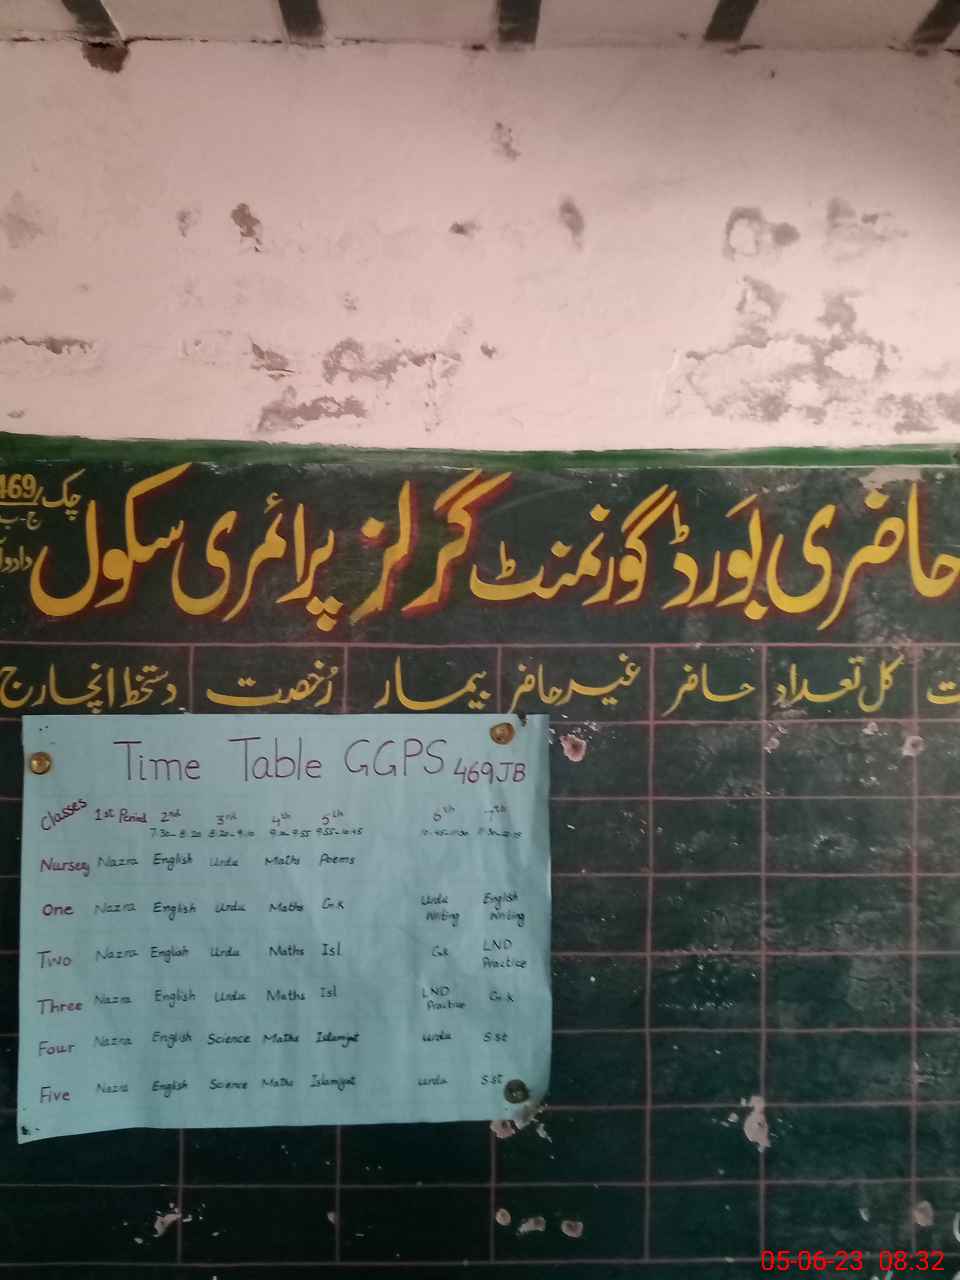 حاضری بورڈ گورنمنٹ گرلز پرائمری سکول
چک 469
ج-ب
کل تعداد حاضر غیر حاضر بیمار رخصت دستخط انچارج
Time Table GGPS 469JB
Classes 1st Period 2nd 3rd 4th 5th 6th 7th
7.30-8.20 8.20-9.10 9.10-9.55 9.55-10.45
Nursery Nazra English Urdu Maths Poems
One Nazra English Urdu Maths G.k Urdu Writing English Writing
Two Nazra English Urdu Maths Isl Gk LND Practice
Three Nazra English Urdu Maths Isl LND Practice G.k
Four Nazra English Science Maths Islamiyat Urdu S.st
Five Nazra English Science Maths Islamiyat Urdu S.st
05-06-23 08:32